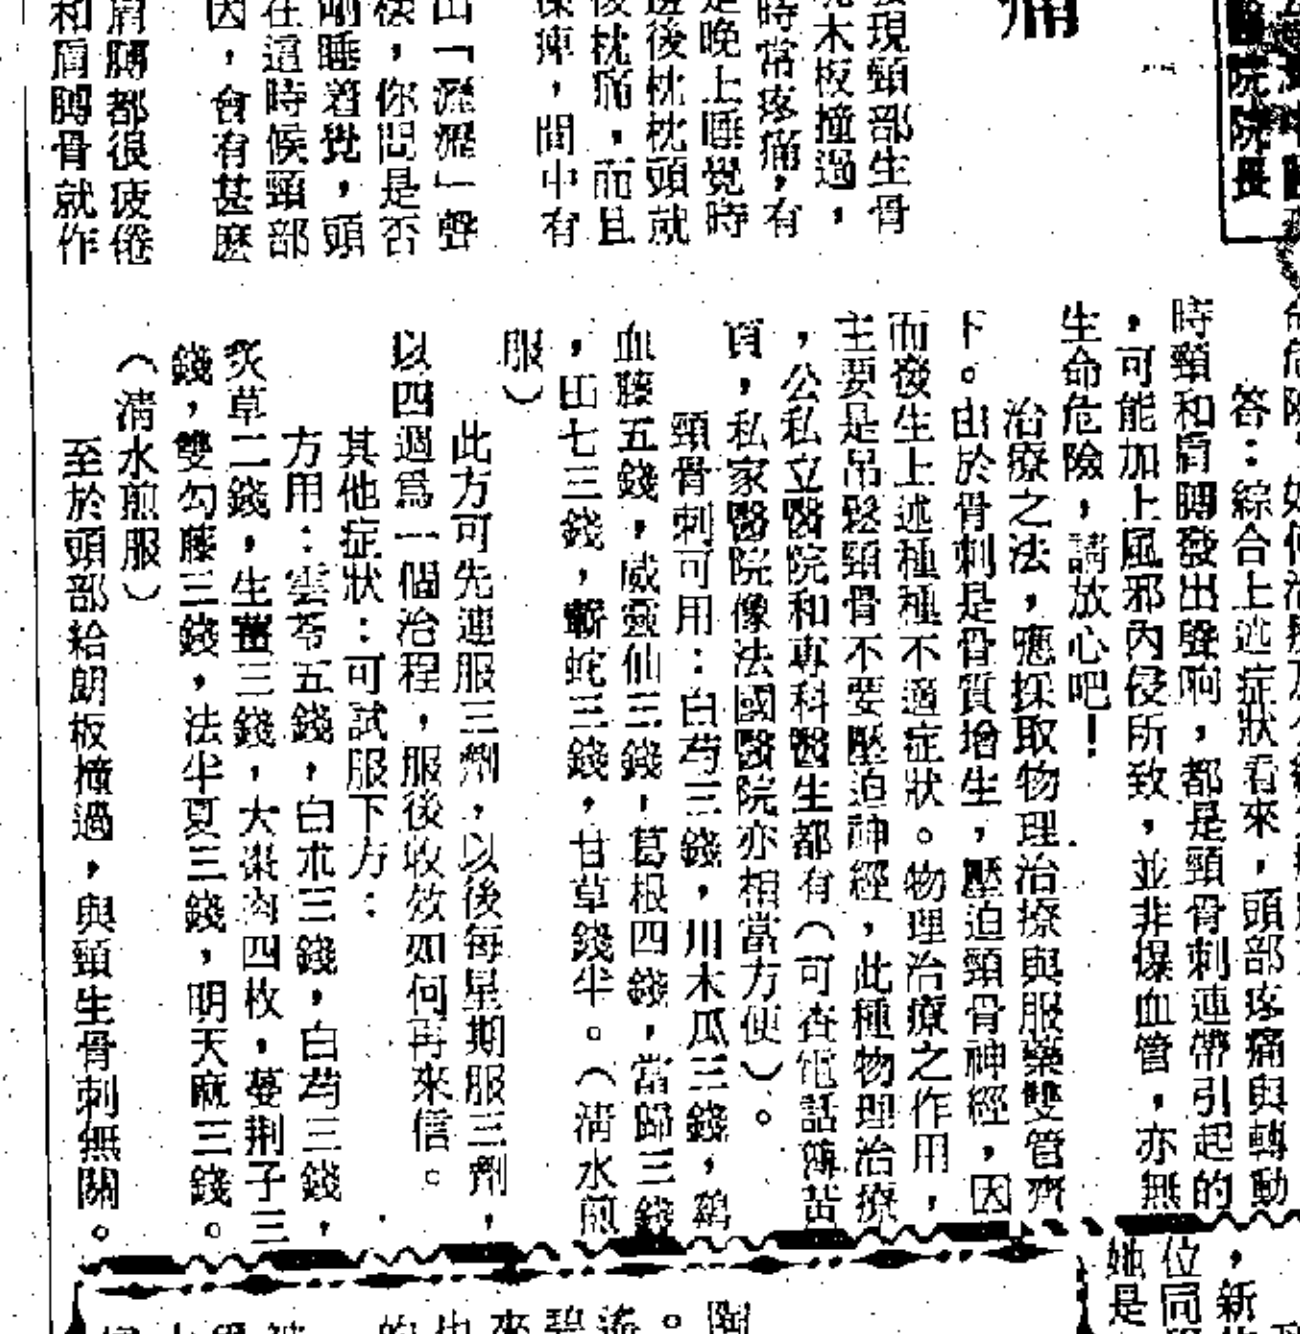 痛
醫院院長
現頸部生骨
木板撞過，
時常疼痛，有
是晚上睡覺時
後枕枕頭就
後枕痛，而且
痺，間中有
出「瀝瀝」聲
樣，你問是否
剛睡着覺，頭
在這時候頸部
因，會有甚麼
肩膊都很疲倦
和肩膊骨就作
答：綜合上述症狀看來，頭部疼痛與轉動
時頸和肩膊發出聲响，都是頸骨刺連帶引起的
，可能加上風邪內侵所致，並非爆血管，亦無
生命危險，請放心吧！
治療之法，應採取物理治療與服藥雙管齊
下。由於骨刺是骨質增生，壓迫頸骨神經，因
而發生上述種種不適症狀。物理治療之作用，
主要是吊鬆頸骨不要壓迫神經，此種物理治療
，公私立醫院和專科醫生都有（可查電話簿黃
頁，私家醫院像法國醫院亦相當方便）。
頸骨刺可用：白芍三錢，川木瓜三錢，鷄
血藤五錢，威靈仙三錢，葛根四錢，當歸三錢
，田七三錢，蘄蛇三錢，甘草錢半。（清水煎
服）
此方可先連服三劑，以後每星期服三劑，
以四週爲一個治程，服後收效如何再來信。
其他症狀：可試服下方：
方用：雲苓五錢，白朮三錢，白芍三錢，
炙草二錢，生薑三錢，大棗肉四枚，蔓荆子三
錢，雙勾藤三錢，法半夏三錢，明天麻三錢。
（清水煎服）
至於頭部給門板撞過，與頸生骨刺無關。
，新
位同
她是